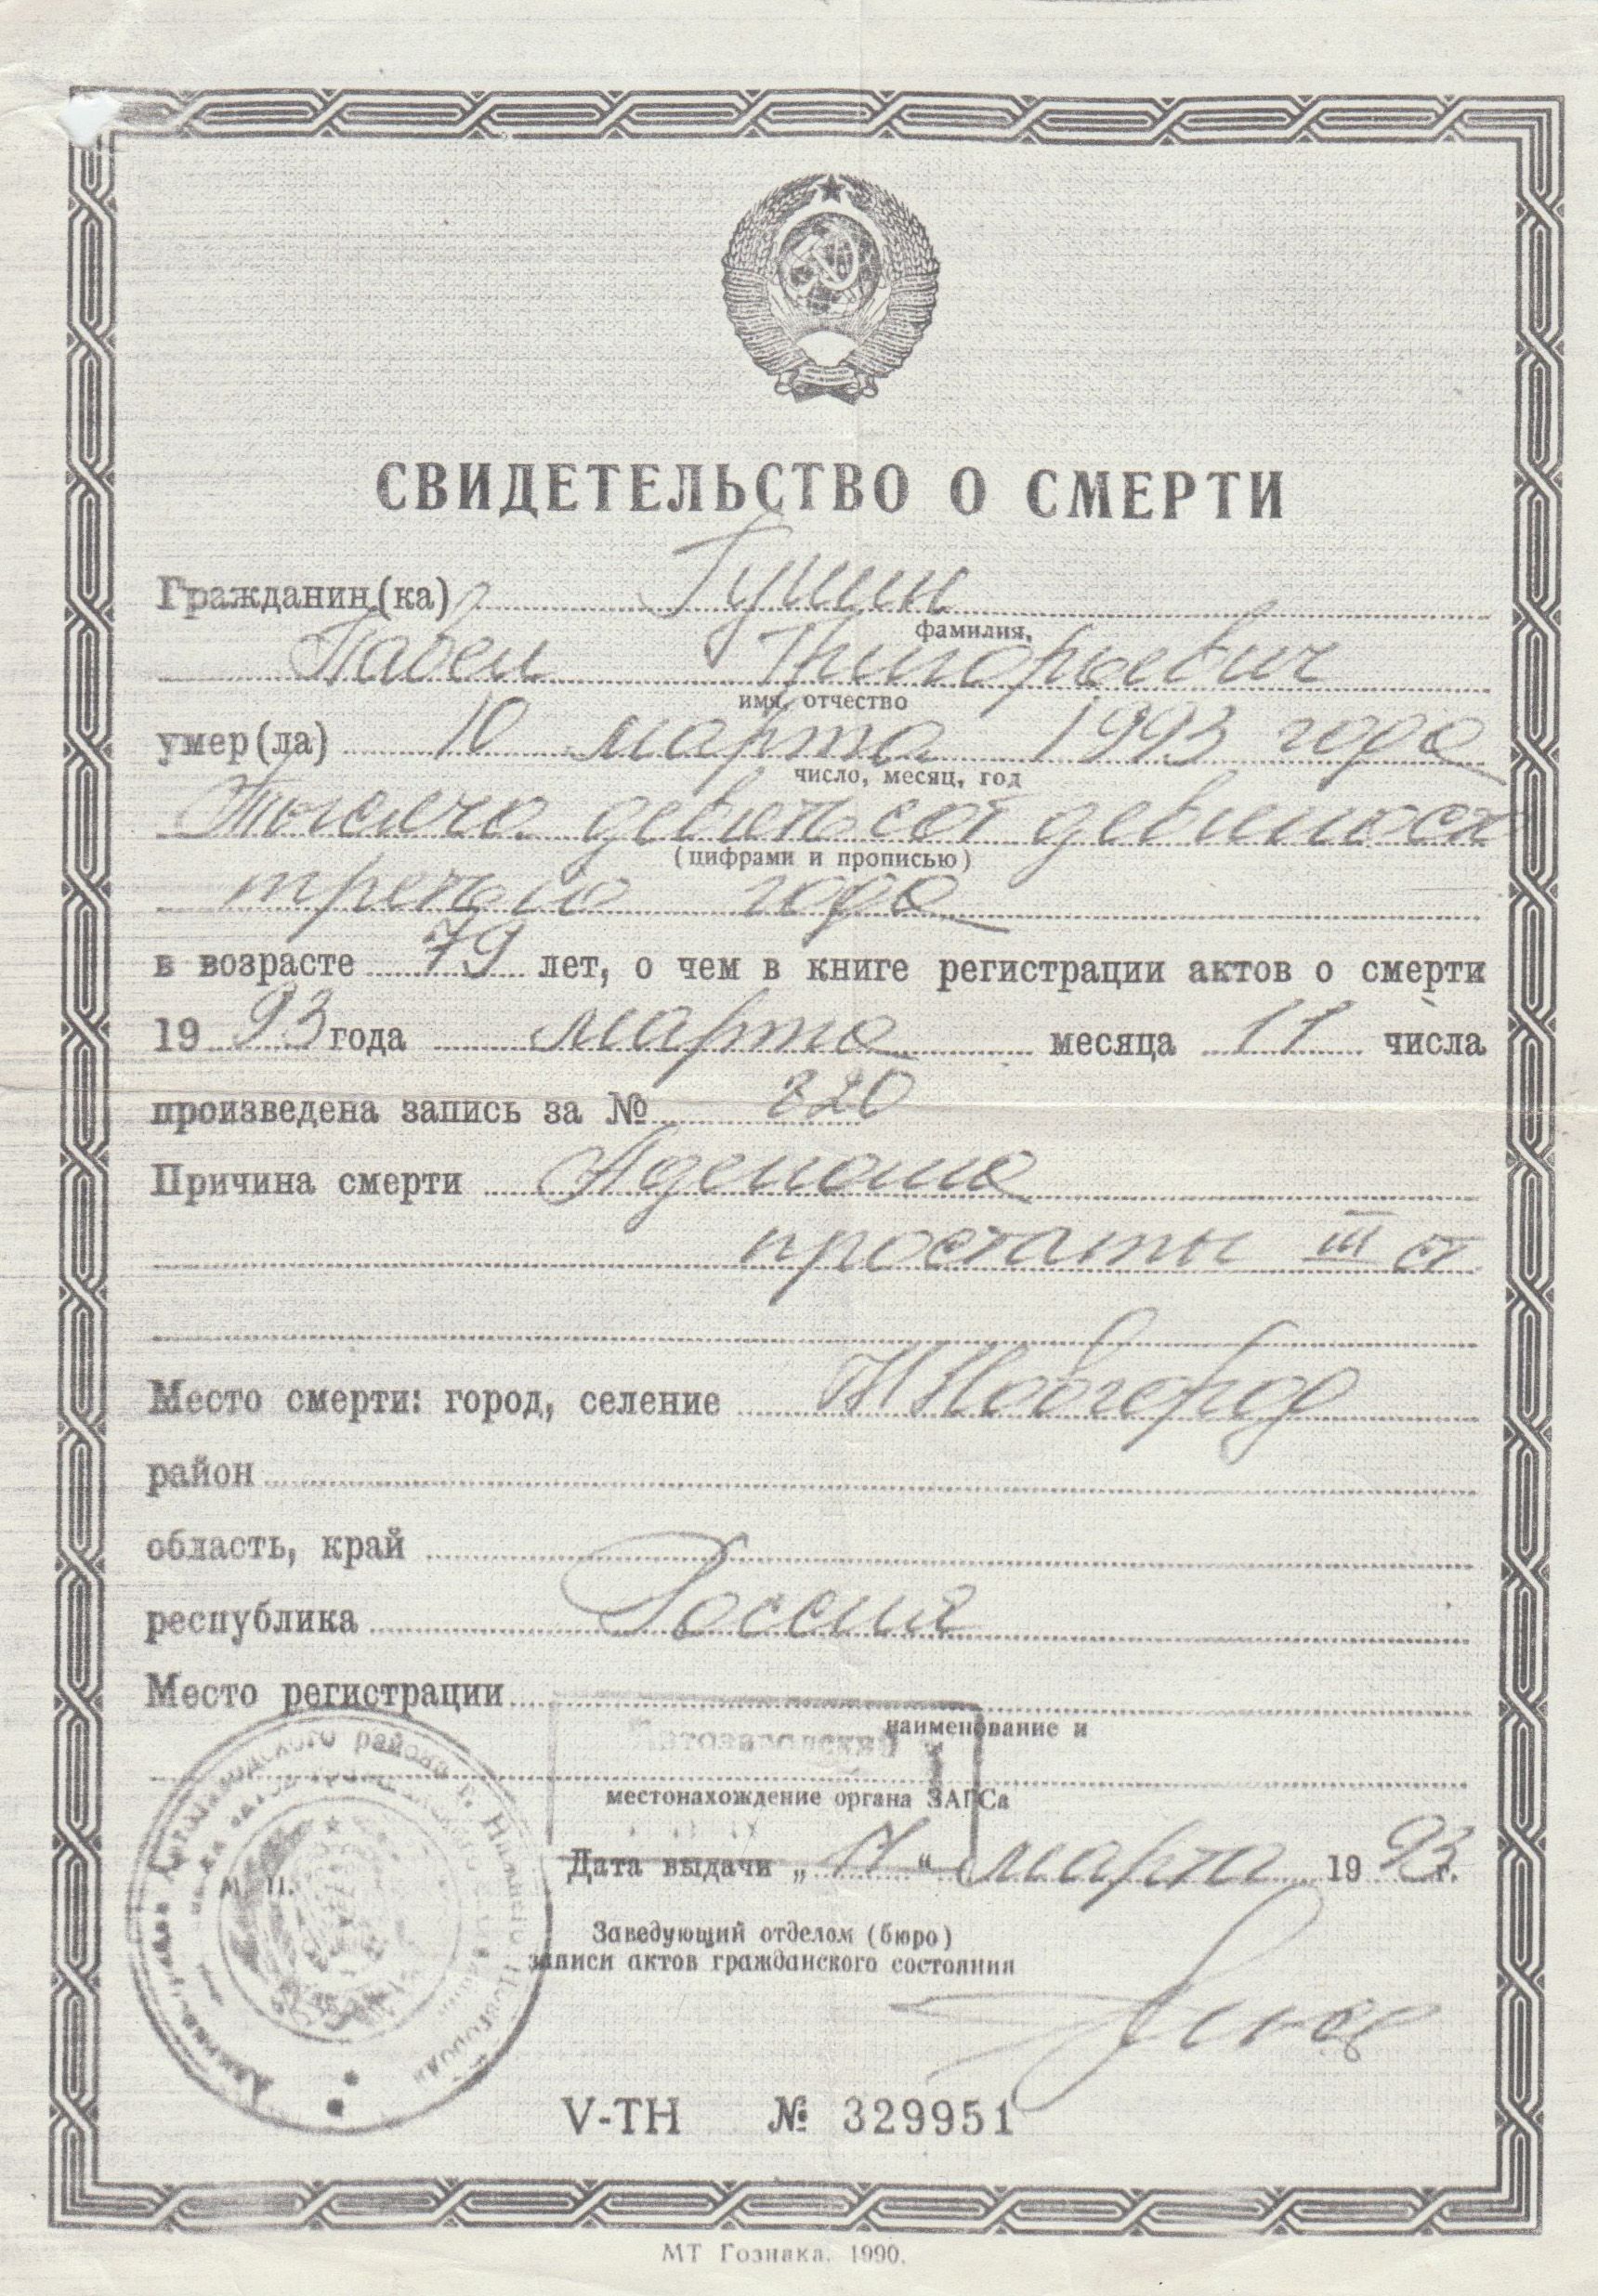 СВИДЕТЕЛЬСТВО О СМЕРТИ
Гражданин(ка) Гущин
фамилия,
Павел Григорьевич
имя, отчество
умер(ла) 10 марта 1993 года
число, месяц, год
Тысяча девятьсот девяносто
(цифрами и прописью)
третьго года
в возрасте 79 лет, о чем в книге регистрации актов о смерти
19 93 года марта месяца 11 числа
произведена запись за № 820
Причина смерти Аденома
простаты III ст.
Место смерти: город, селение Н Новгород
район
область, край
республика Россия
Место регистрации
наименование и
Автозаводский
местонахождение органа ЗАГСа
М. П.
Дата выдачи „ 11 “ марта 19 93 г.
Заведующий отделом (бюро)
записи актов гражданского состояния
V-ТН № 329951
МТ Гознака. 1990.